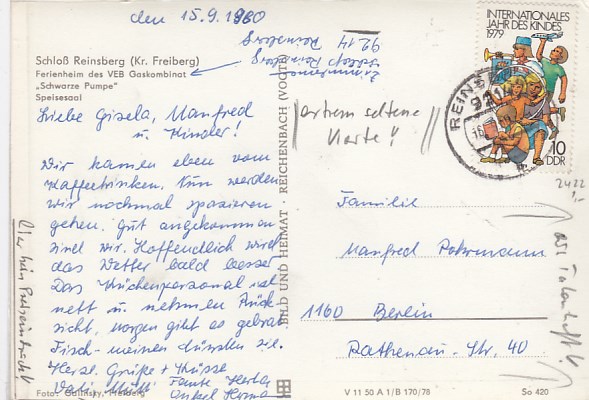 den 15.9.1980
Schloß Reinsberg (Kr. Freiberg)
Ferienheim des VEB Gaskombinat
„Schwarze Pumpe"
Speisesaal
9214 Reinsberg
Liebe Gisela, Manfred
u. Kinder!
Wir kamen eben vom
Kaffeetrinken. Nun werden
wir nochmal spazieren
gehen. Gut angekommen
sind wir. Hoffendlich wird
das Wetter bald besser
Das Küchenpersonal ist
nett u. nehmen Rück-
sicht, morgen gibt es gebrat.
Fisch - meinen dürften sie.
Herzl. Grüße + Küsse
Tante Herta
Onkel
Foto: Galinsky, Freiberg
BILD UND HEIMAT · REICHENBACH (VOGTL)
extrem seltene
Karte!!
INTERNATIONALES
JAHR DES KINDES
1979
10
DDR
REINSB
921
2422
Familie
Manfred
1160 Berlin
Rathenau-Str. 40
V 11 50 A 1/B 170/78
So 420